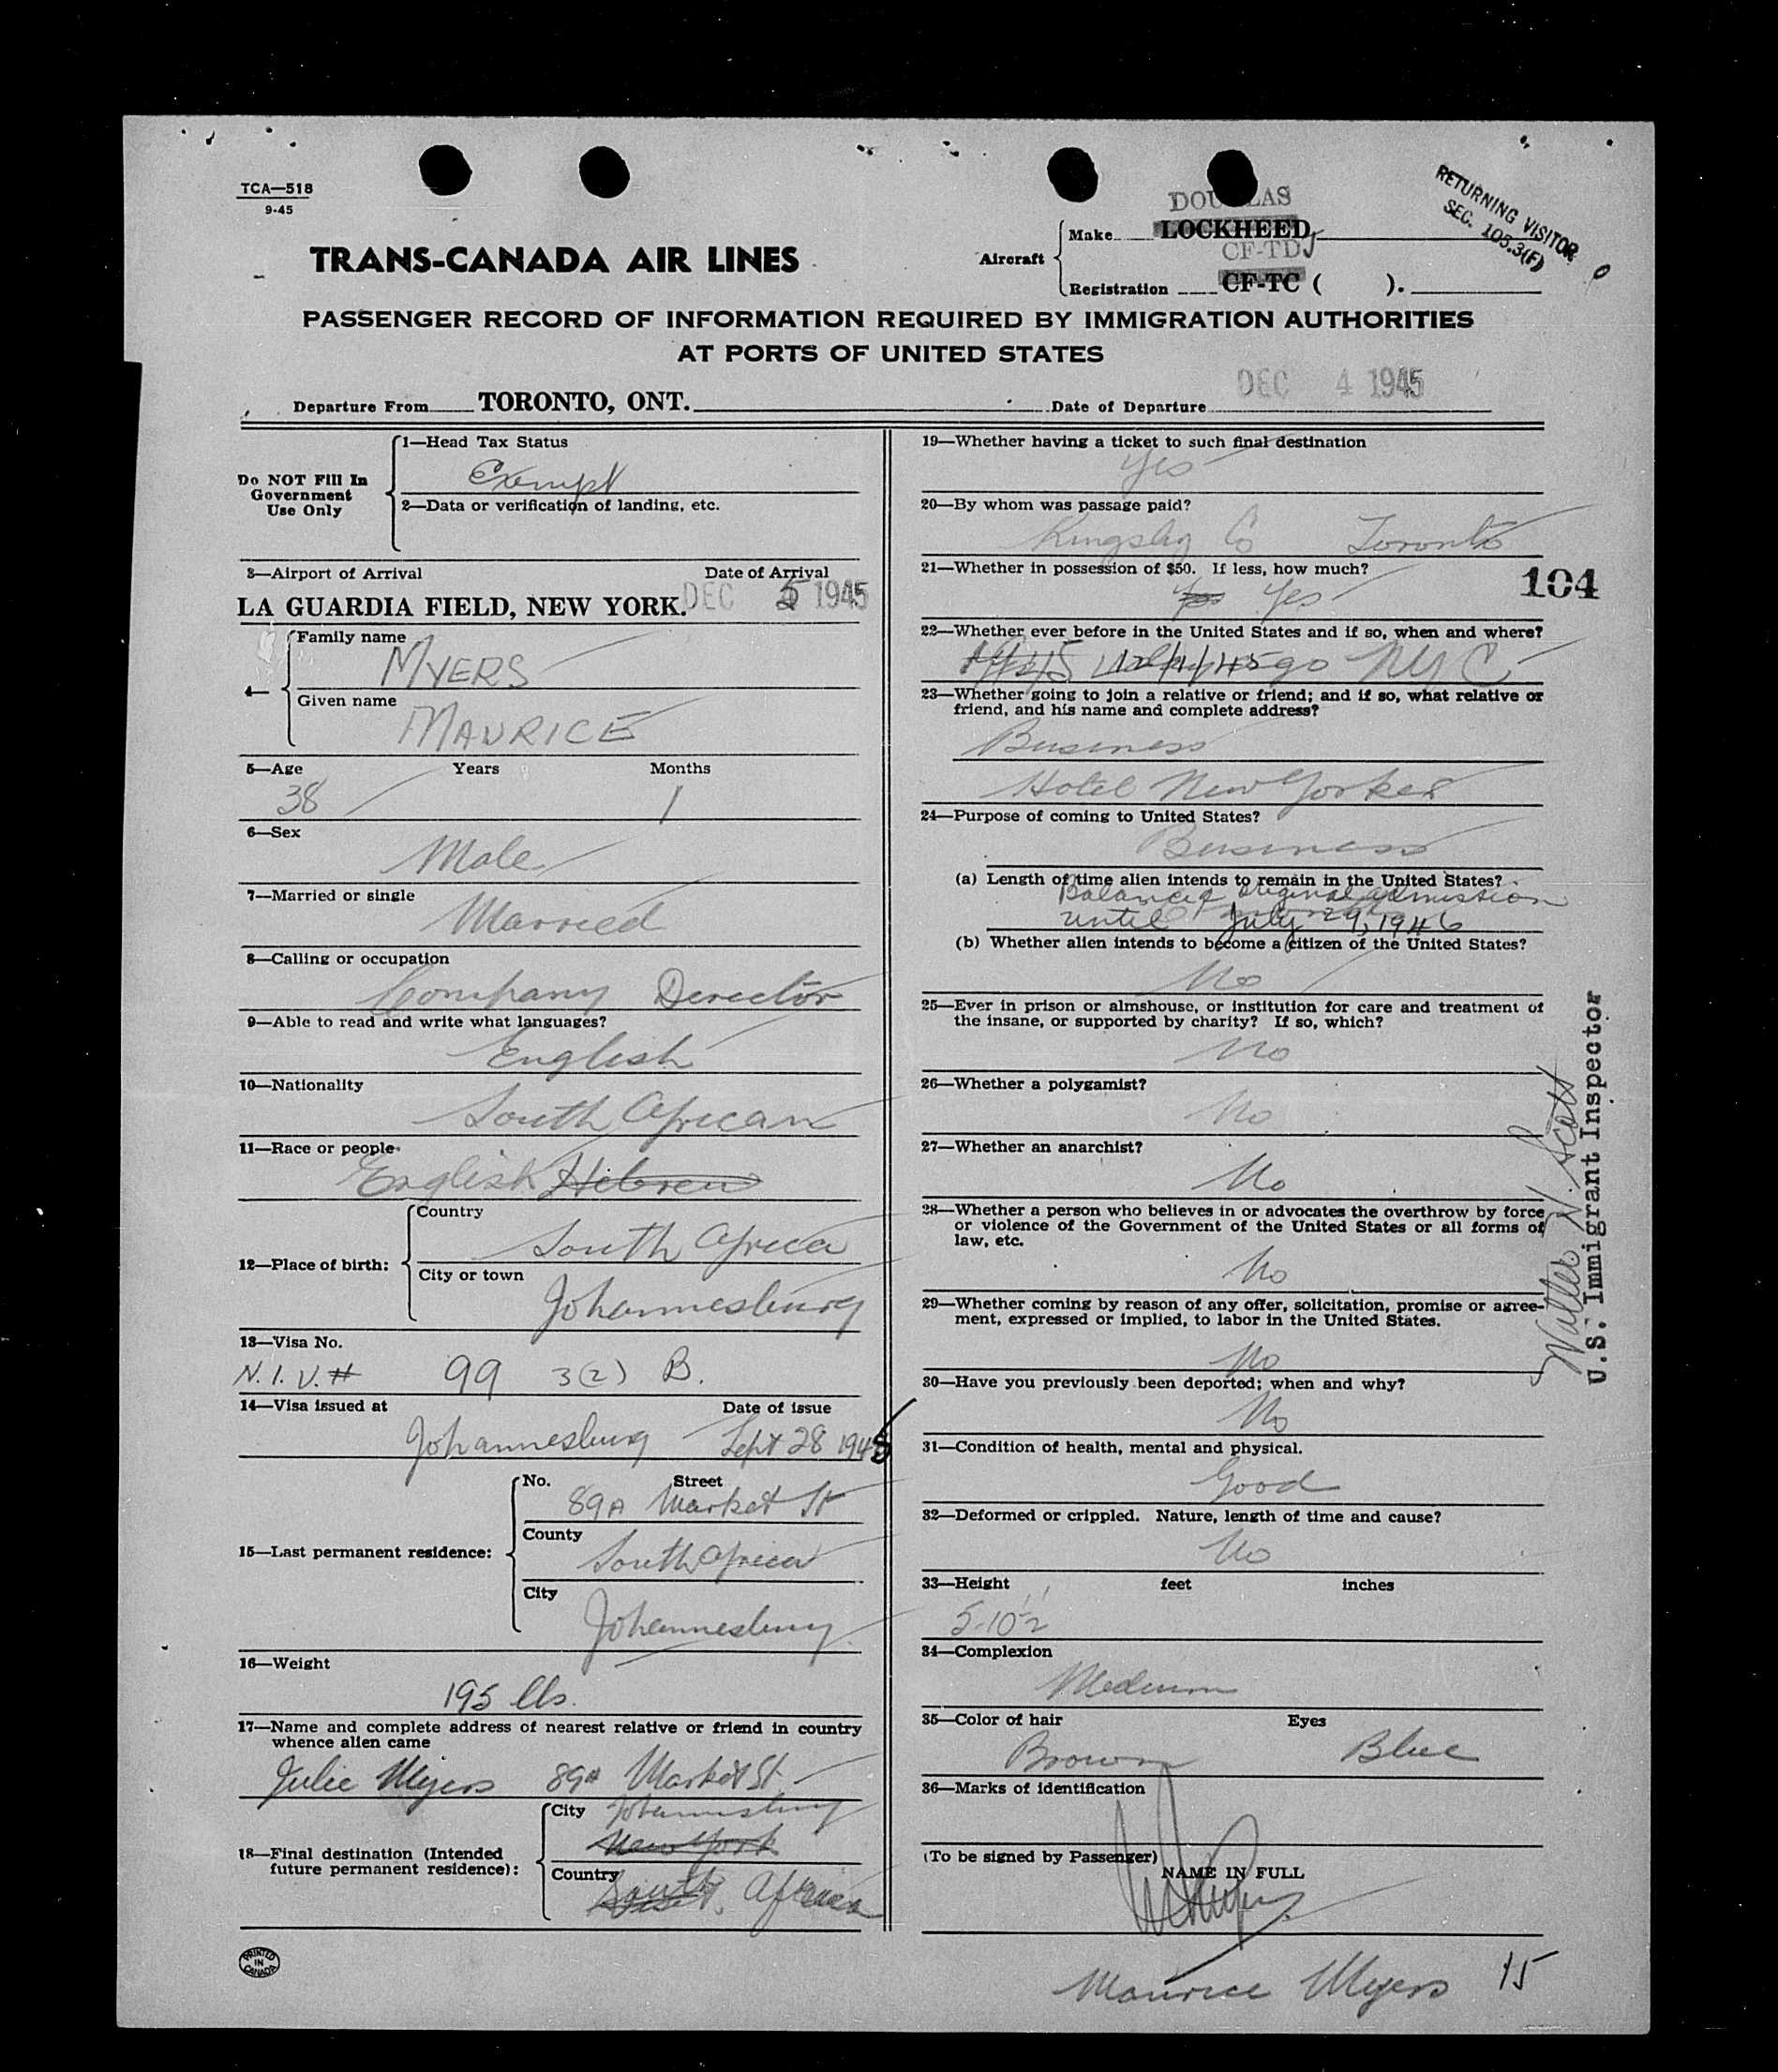 TCA—518
9-45
RETURNING VISITOR
SEC. 105.3(F)
DOUGLAS
Aircraft
Make LOCKHEED
CF-TDJ
Registration CF-TC ( ).
TRANS-CANADA AIR LINES
PASSENGER RECORD OF INFORMATION REQUIRED BY IMMIGRATION AUTHORITIES
AT PORTS OF UNITED STATES
Departure From TORONTO, ONT. Date of Departure DEC 4 1945
Do NOT Fill In
Government
Use Only
1—Head Tax Status
Exempt
2—Data or verification of landing, etc.
3—Airport of Arrival Date of Arrival
LA GUARDIA FIELD, NEW YORK. DEC 5 1945
4—
Family name
MYERS
Given name
MAURICE
5—Age Years Months
38 1
6—Sex
Male
7—Married or single
Married
8—Calling or occupation
Company Director
9—Able to read and write what languages?
English
10—Nationality
South African
11—Race or people
English Hebrew
12—Place of birth:
Country
South Africa
City or town
Johannesburg
13—Visa No.
N.I.V.# 99 3(2) B.
14—Visa issued at Date of issue
Johannesburg Sept 28 1945
15—Last permanent residence:
No. Street
89A Market St
County
South Africa
City
Johannesburg
16—Weight
195 lbs.
17—Name and complete address of nearest relative or friend in country
whence alien came
Julie Myers 89A Market St.
18—Final destination (Intended
future permanent residence):
City Johannesburg
New York
Country
South Africa
PRINTED
IN
CANADA
19—Whether having a ticket to such final destination
Yes
20—By whom was passage paid?
Co Toronto
21—Whether in possession of $50. If less, how much?
Yes
104
22—Whether ever before in the United States and if so, when and where?
NYC
23—Whether going to join a relative or friend; and if so, what relative or
friend, and his name and complete address?
Business
Hotel New Yorker
24—Purpose of coming to United States?
Business
(a) Length of time alien intends to remain in the United States?
Balance of original admission
until July 29, 1946
(b) Whether alien intends to become a citizen of the United States?
No
25—Ever in prison or almshouse, or institution for care and treatment of
the insane, or supported by charity? If so, which?
No
26—Whether a polygamist?
No
27—Whether an anarchist?
No
28—Whether a person who believes in or advocates the overthrow by force
or violence of the Government of the United States or all forms of
law, etc.
No
29—Whether coming by reason of any offer, solicitation, promise or agree-
ment, expressed or implied, to labor in the United States.
No
30—Have you previously been deported; when and why?
No
31—Condition of health, mental and physical.
Good
32—Deformed or crippled. Nature, length of time and cause?
No
33—Height feet inches
5-10½
34—Complexion
Medium
35—Color of hair Eyes
Brown Blue
36—Marks of identification
(To be signed by Passenger)
NAME IN FULL
Maurice Myers 15
Walter N. Scott
U.S. Immigrant Inspector